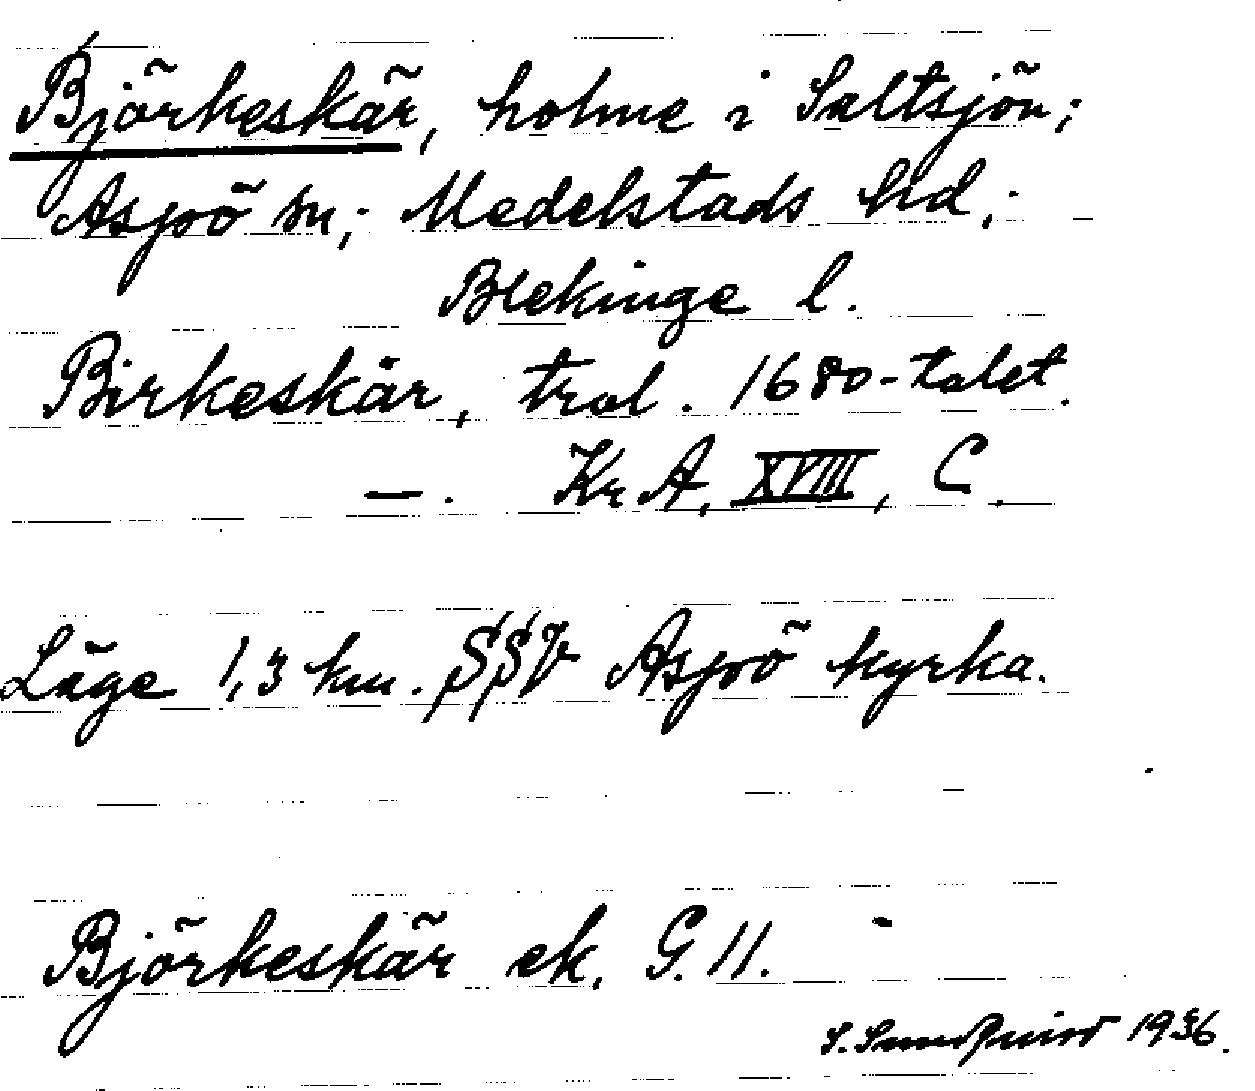 Björkeskär, holme i Saltsjön;
Aspö sn; Medelstads hd;
Blekinge l.
Birkeskär, trol. 1680-talet.
—. Kr A, XVIII, C.
Läge 1,3 km. SSV Aspö kyrka.
Björkeskär ek. G. 11.
S. Sundquist 1936.